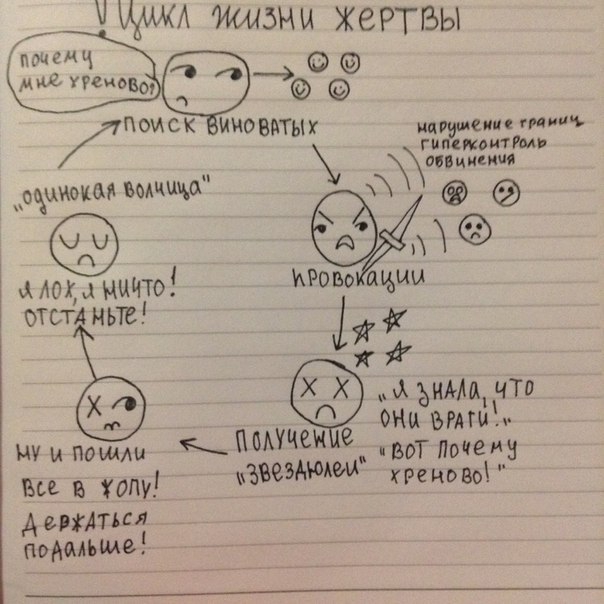 Цикл жизни жертвы
почему
мне хреново?
поиск виноватых
нарушение границ
гиперконтроль
обвинения
провокации
"Я знала, что
они враги!"
"Вот почему
хреново!"
получение
"звездюлей"
ну и пошли
все в жопу!
держаться
подальше!
я лох, я ничто!
отстаньте!
"одинокая волчица"